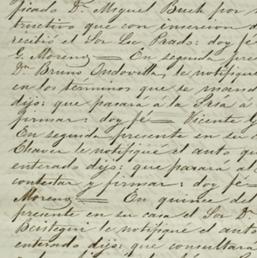 ficado Dn. Miguel Buch por
tructivo que con insercion d
recibió el Sor Lic Prado: doy fé
G. Moreno — En segunda pre
Dn. Bruno Andovilla, le notifique
en los terminos que se mand
dijo: que pasara á la Presa á
firmar: doy fé — Vicente G
En segunda presente en su
Chavez le notifiqué el auto q
enterado dijo: que pasará al
contestar y firmar: doy fé —
Moreno — En quince del
presente en su casa el Sor D
Bustegui le notifiqué el auto
enterado dijo: que consultara